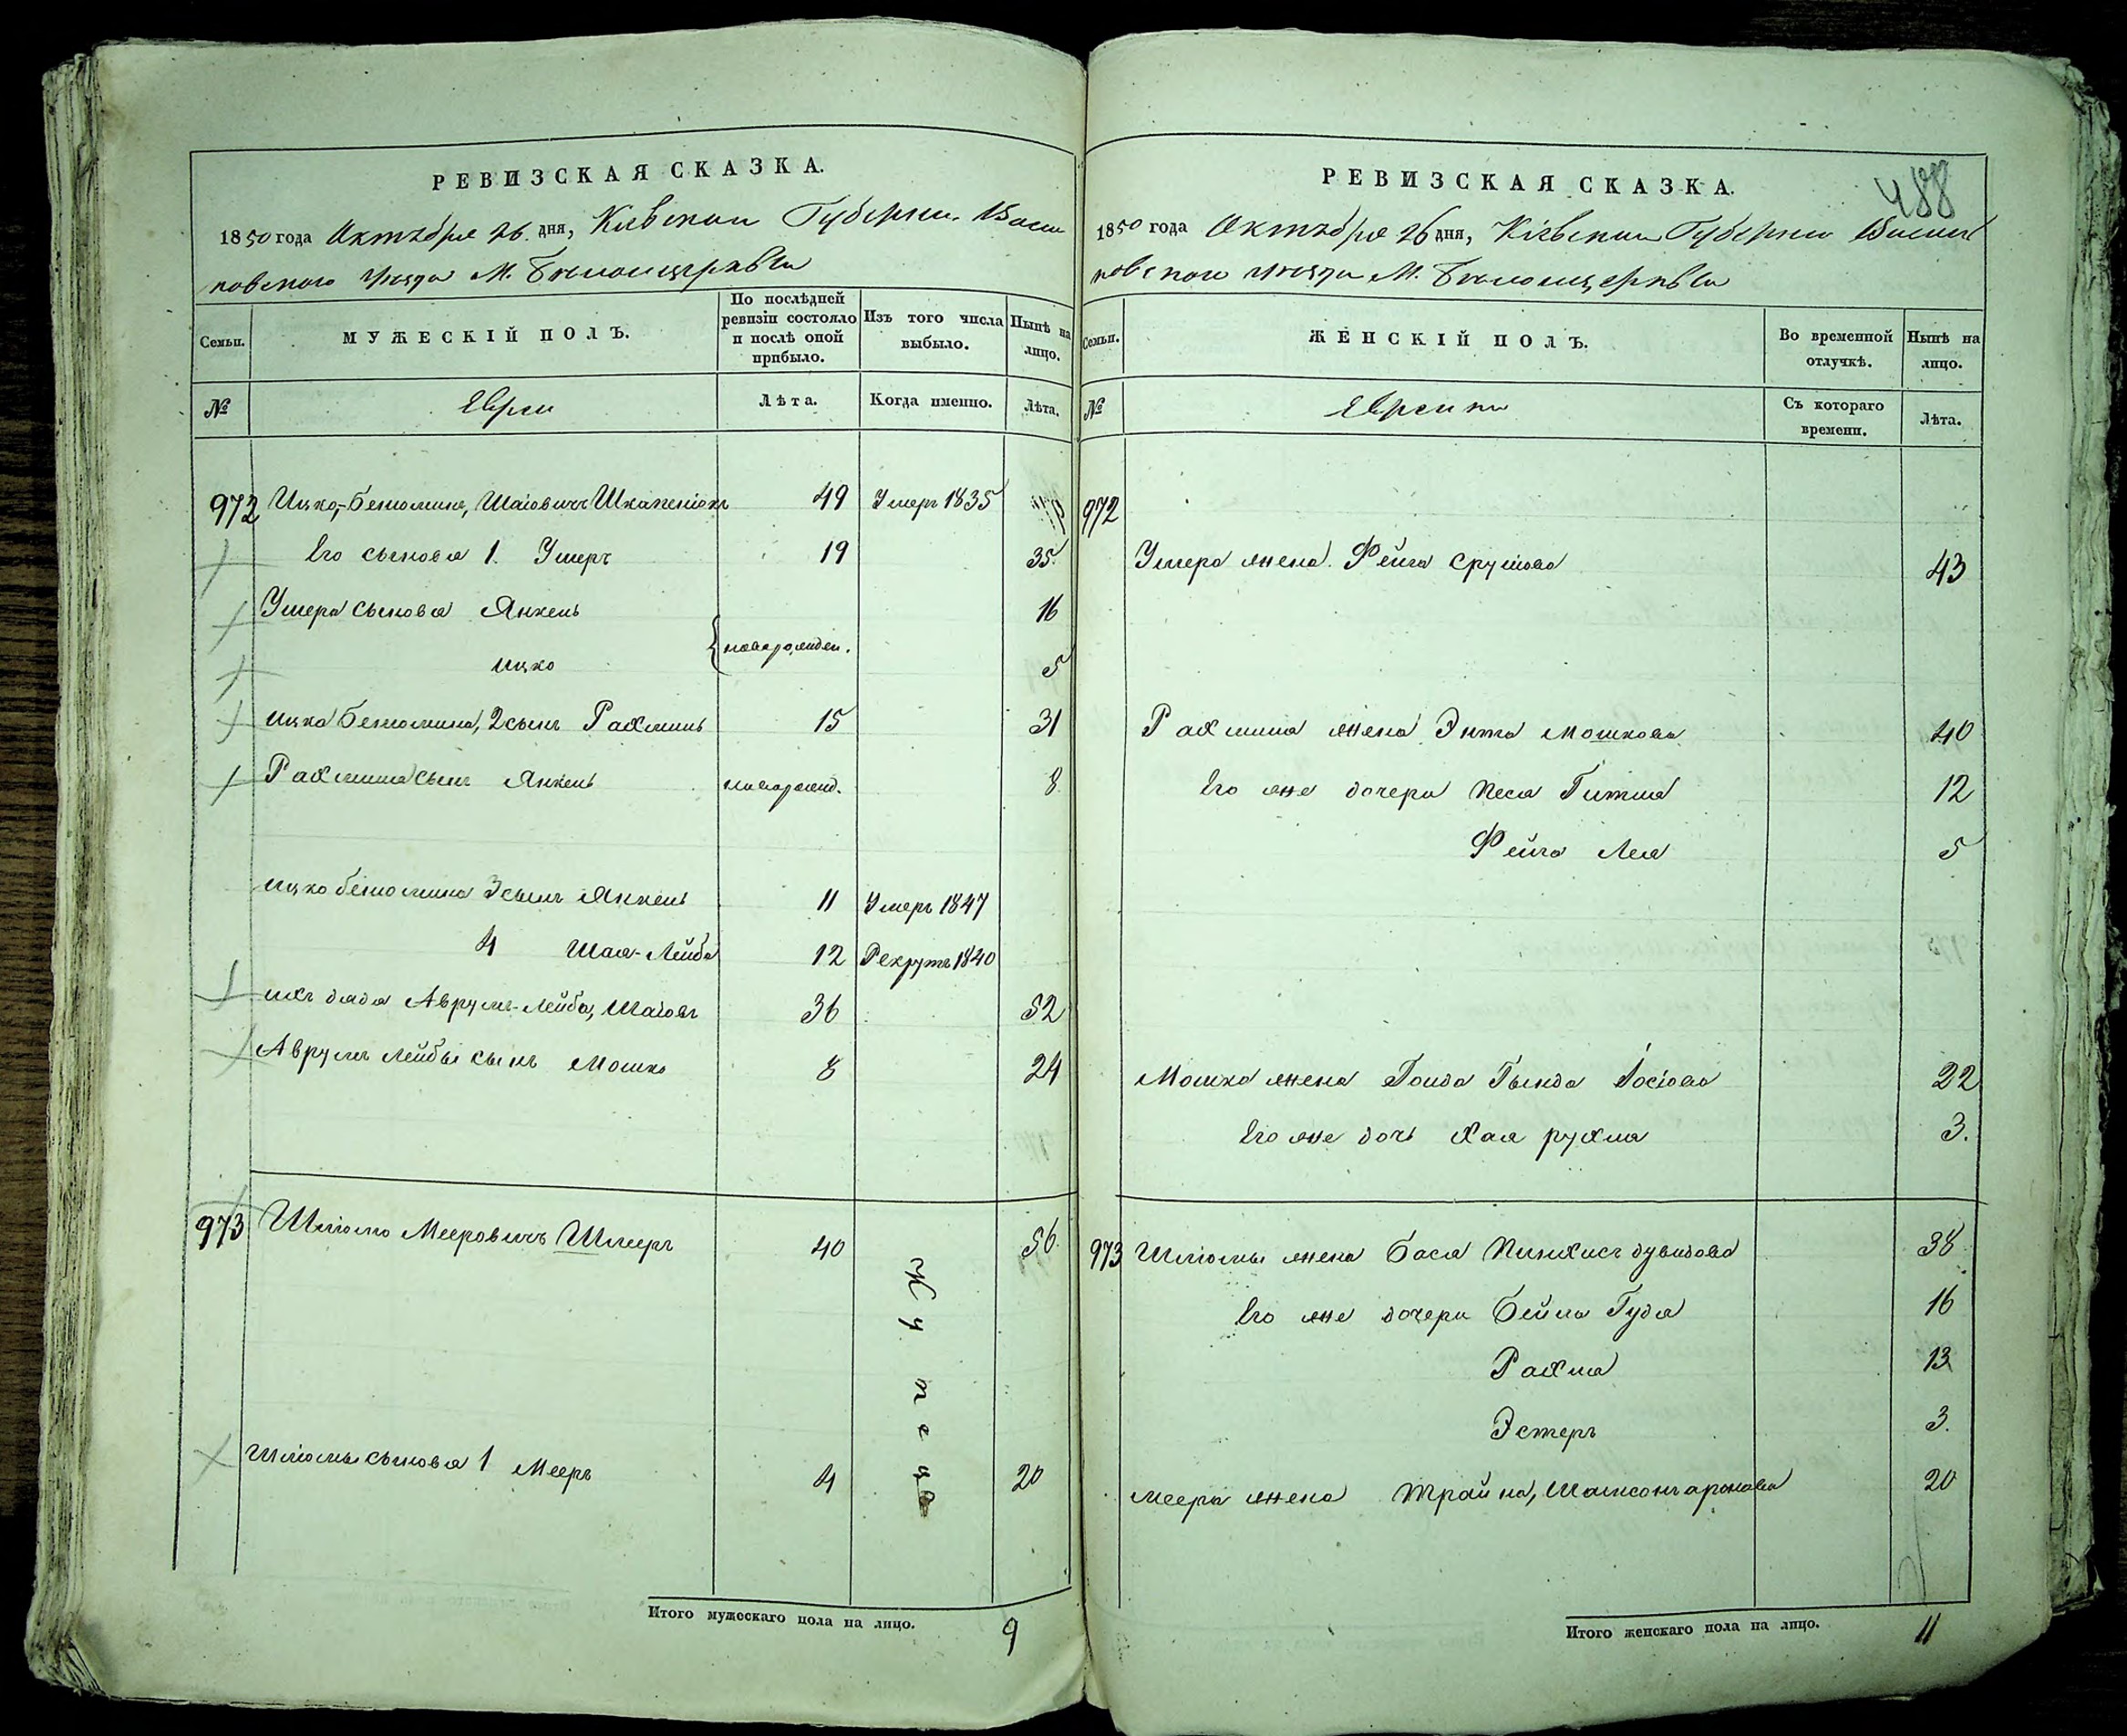 РЕВИЗСКАЯ СКАЗКА.
1850 года Октября 26 дня, Киевской Губернии Василь
ковского уезда М. Белоицеркви
Семьи.
МУЖЕСКІЙ ПОЛЪ.
По послѣдней ревизіи состояло и послѣ оной прибыло.
Изъ того числа выбыло.
Нынѣ на лицо.
№
Евреи
Лѣта.
Когда именно.
Лѣта.
972 Ицко-Бениомин, Шаіовичъ 49 Умеръ 1835
Его сыновья 1. Умеръ 19 35
Умера сыновья Янкель 16
{новорожден.
Ицко 5
Ицка Бениомина, 2 сынъ Рахминь 15 31
Рахмина сынъ Янкель новорожд. 8
Ицко Бениомина 3 сынъ Янкель 11 Умеръ 1847
4 Шая-Лейба 12 Рекрутъ 1840
ихъ дядя Аврумъ-Лейба, Шаіовъ 36 52
Аврумъ Лейбы сынъ Мошко 8 24
973 Шліомо Мееровичъ Шмеръ 40 56
Купецъ
Шліомы сыновья 1 Мееръ 4 20
Итого мужескаго пола на лицо. 9
488
РЕВИЗСКАЯ СКАЗКА.
1850 года Октября 26 дня, Кіевской Губернии Василь
ковского уезда М. Белоицеркви
Семьи.
ЖЕНСКІЙ ПОЛЪ.
Во временной отлучкѣ.
Нынѣ на лицо.
№
Еврейки
Съ котораго времени.
Лѣта.
972
Умера жена Фейга Срулова 43
Рахмина жена Энта Мошкова 40
Его же дочери Песя Гитля 12
Фейга Лея 5
Мошка жена Гинда Іосіова 22
Его же дочь Хая рухля 3.
973 Шліомы жена Бася Пинхисъ дувидова 38
Его же дочери Бейла Гудя 16
Рахля 13
Эстеръ 3.
Меера жена Трайна, Шамсонъ аронова 20
Итого женскаго пола на лицо. 11